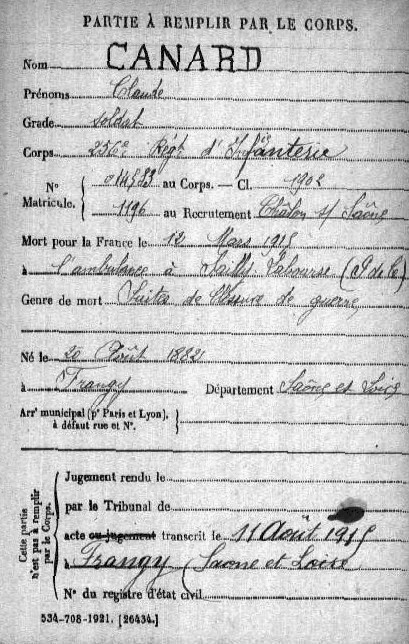 PARTIE À REMPLIR PAR LE CORPS.
Nom CANARD
Prénoms Claude
Grade Soldat
Corps 256e Régt d'Infanterie
N° Matricule. { 014583 au Corps. — Cl. 1902
1196 au Recrutement Châlon s/ Saône
Mort pour la France le 12 Mars 1915
à l'ambulance à Sailly Labourse (P de C)
Genre de mort Suites de blessure de guerre
Né le 20 Août 1882
à Frangy Département Saône et Loire
Arrt municipal (pr Paris et Lyon), à défaut rue et N°. }
Cette partie n'est pas à remplir par le Corps. {
Jugement rendu le
par le Tribunal de
acte ou jugement transcrit le 11 Août 1915
à Frangy (Saone et Loire
N° du registre d'état civil
534-708-1921. [26434.]